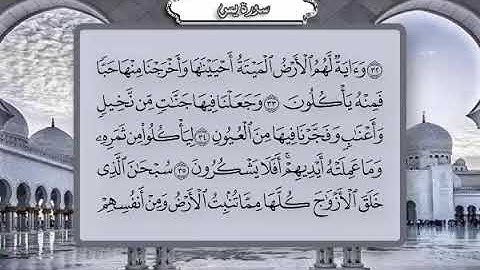 سورة يس
٣٢ وَءَايَةٌ لَّهُمُ ٱلْأَرْضُ ٱلْمَيْتَةُ أَحْيَيْنَٰهَا وَأَخْرَجْنَا مِنْهَا حَبًّا
فَمِنْهُ يَأْكُلُونَ ٣٣ وَجَعَلْنَا فِيهَا جَنَّٰتٍ مِّن نَّخِيلٍ
وَأَعْنَٰبٍ وَفَجَّرْنَا فِيهَا مِنَ ٱلْعُيُونِ ٣٤ لِيَأْكُلُوا۟ مِن ثَمَرِهِۦ
وَمَا عَمِلَتْهُ أَيْدِيهِمْ ۖ أَفَلَا يَشْكُرُونَ ٣٥ سُبْحَٰنَ ٱلَّذِى
خَلَقَ ٱلْأَزْوَٰجَ كُلَّهَا مِمَّا تُنۢبِتُ ٱلْأَرْضُ وَمِنْ أَنفُسِهِمْ